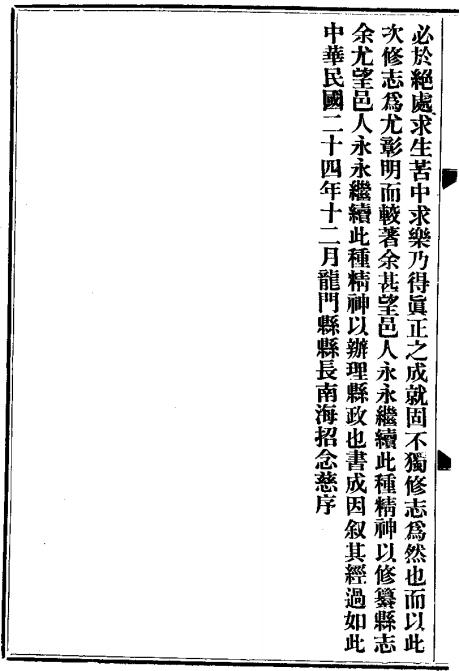 必於絕處求生苦中求樂乃得眞正之成就固不獨修志爲然也而以此
次修志爲尤彰明而較著余甚望邑人永永繼續此種精神以修纂縣志
余尤望邑人永永繼續此種精神以辦理縣政也書成因叙其經過如此
中華民國二十四年十二月龍門縣縣長南海招念慈序